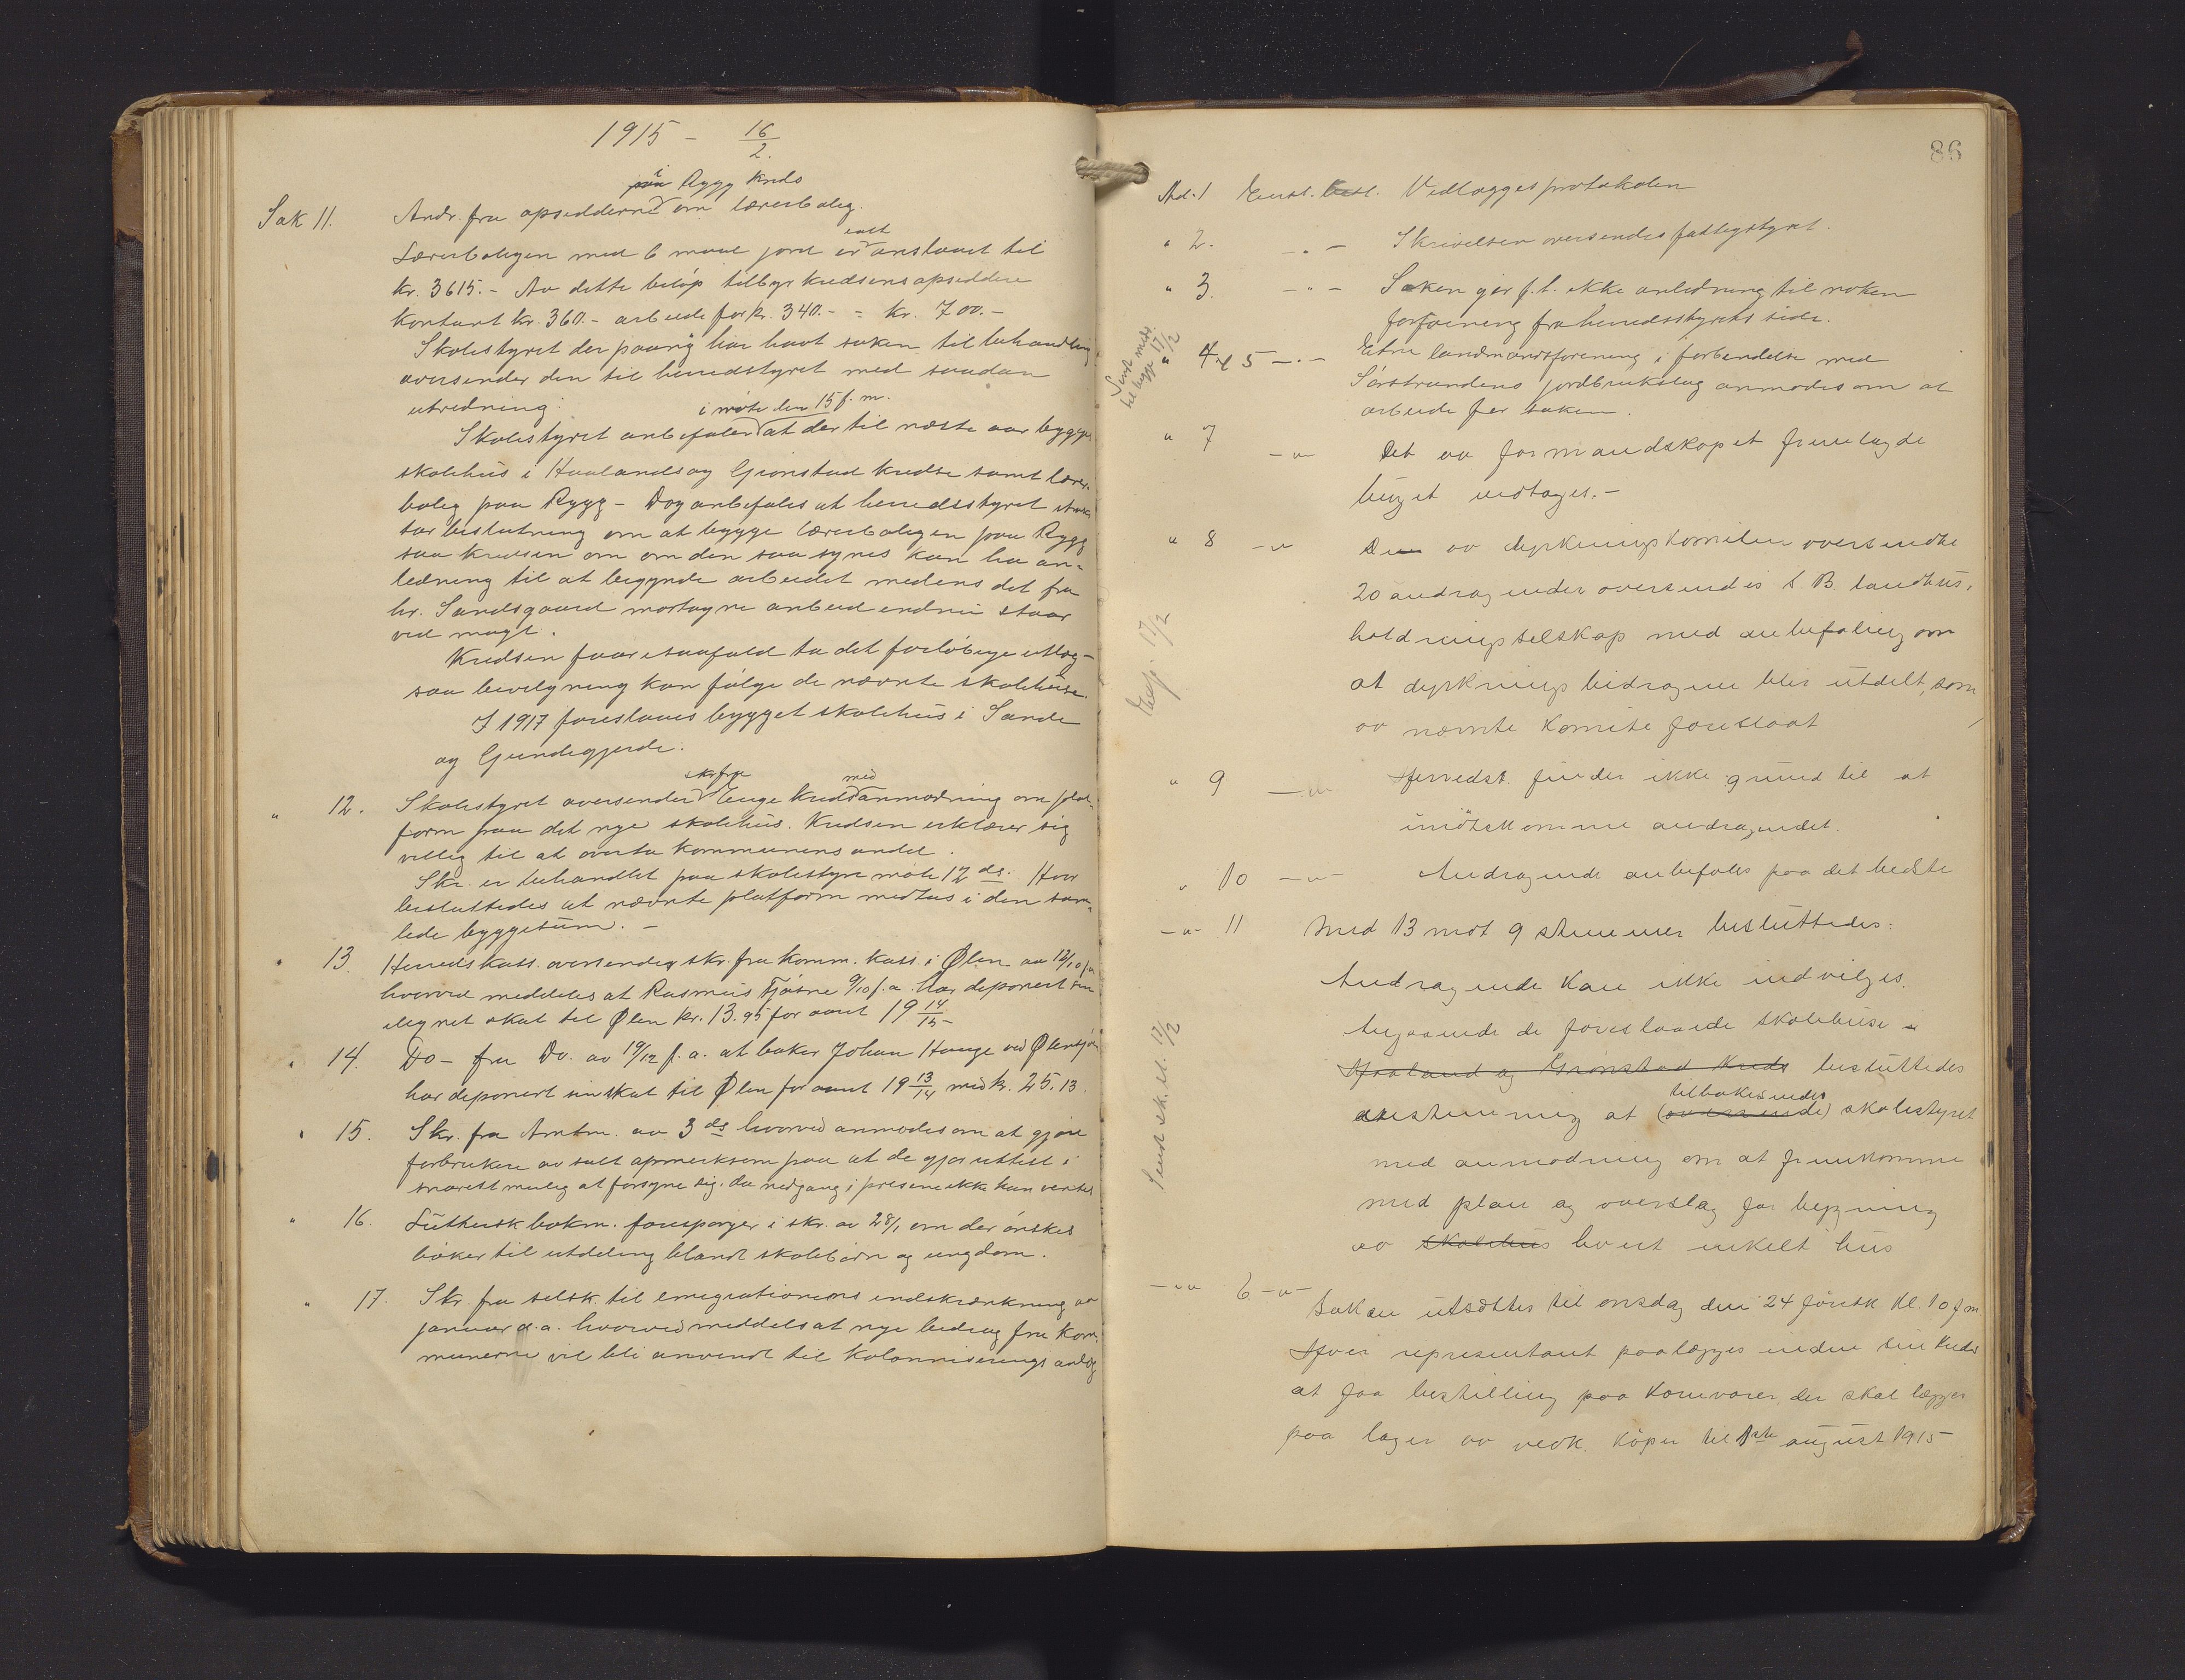 1915 - 16/2.
paa i Rygg Kreds
Sak 11. Andr. fra opsidderne om lærerbolig.
Lærerboligen med 6 maal jord er ialt anslaaet til
kr. 3615.- Av dette beløp tilbyr kredsens opsiddere
kontant kr. 360.- arbeide for kr. 340.- = kr. 700.-
Skolestyret der paany har havt saken til behandling
oversender den til herredstyret med saadan
utredning:
Skolestyret anbefaler i møte den 15 f. m. at der til næste aar bygges
skolehus i Haaland og Grønstad kredse samt lærer-
bolig paa Rygg - Dog anbefales at herredsstyret
tar beslutning om at bygge lærerboligen paa Rygg
saa kredsen om om den saa synes kan ha an-
ledning til at begynde arbeidet medens det fra
hr. Sandsgaard mottagne anbud endnu staar
ved magt.
Kredsen faar isaafald ta det forløbige utlæg -
saa bevilgning kan følge de nævnte skolehuse.
I 1917 foreslaaes bygget skolehus i Sande
og Gjerdegjerde.
" 12. Skolestyret oversender skr. fra Enge kreds med anmodning om plat-
form paa det nye skolehus. Kredsen erklærer sig
villig til at overta kommunens andel.
Skr. er behandlet paa skolestyremøte 12 ds. Hvor
besluttedes at nævnte platform medtas i den sam-
lede byggesum. -
" 13. Herredskass. oversender skr. fra komm. kass. i Ølen av 12/10 f.a.
hvorved meddeles at Rasmus Fjøsne 9/10 f.a. har deponert sin
ilignet skat til Ølen kr. 13.95 for aaret 19 14/15 -
" 14. Do - fra Do. av 19/12 f. a. at baker Johan Hauge ved Ølensjøen
har deponert sin skat til Ølen for aaret 19 13/14 med kr. 25.13.
" 15. Skr. fra Amtm. av 3 ds hvorved anmodes om at gjøre
forbrukere av salt opmerksom paa at de gjør rettest i
snarest mulig at forsyne sig, da nedgang i prisene ikke kan ventes
" 16. Luthersk bokm. forespørger i skr. av 28/1 om der ønskes
bøker til utdeling blandt skolebørn og ungdom.
" 17. Skr. fra selsk. til emigrationens indskrænkning av
januar d.a. hvorved meddeles at nye bidrag fra kom-
munerne vil bli anvendt til koloniserings anlæg
86
Ad. 1 Enst. besl. Vedlægges protokolen
" 2. - " - Skrivelsen oversendes fattigstyret.
" 3. - " - Saken gir f. t. ikke anledning til noken
forføining fra herredsstyrets side.
Sendt medd. til begge 17/2
" 4 og 5 - " - Etne landmandsforening i forbindelse med
Sørstrandens jordbrukslag anmodes om at
arbeide for saken.
" 7 - " - Det av formandskapet fremlagde
budget vedtages. -
" 8 - " - De av dyrkningskomiteen oversendte
20 andragender oversendes S. B. landhus-
holdningsselskap med anbefaling om
at dyrkningsbidragene blir utdelt, som
av nævnte komite foreslaat
Exsp. 17/2
" 9 - " - Herredst. finder ikke grund til at
imøtekomme andragendet.
" 10 - " - Andragende anbefales paa det bedste
- " - 11 Med 13 mot 9 stemmer besluttedes:
Andragende kan ikke indvilges.
Angaaende de foreslaaede skolehuse i
Haaland og Grønstad kreds besluttedes
enstemmig at (oversende) tilbakesendes skolestyret
med anmodning om at fremkomme
med plan og overslag for bygning
av skolehus hvert enkelt hus
Sendt sk.st. 17/2
- " - 6 - " - Saken utsættes til onsdag den 24 førstk. kl. 10 f.m.
Hver representant paalægges inden sin kreds
at faa bestilling paa kornvarer, der skal lægges
paa lager av vedk. kjøper til 1ste august 1915